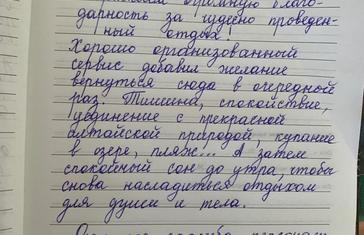 огромную благо-
дарность за чудесно проведен-
ный отдых!
Хорошо организованный
сервис добавил желание
вернуться сюда в очередной
раз. Тишина, спокойствие,
уединение с прекрасной
алтайской природой, купание
в озере, пляж... А затем
спокойный сон до утра, чтобы
снова насладиться отдыхом
для души и тела.